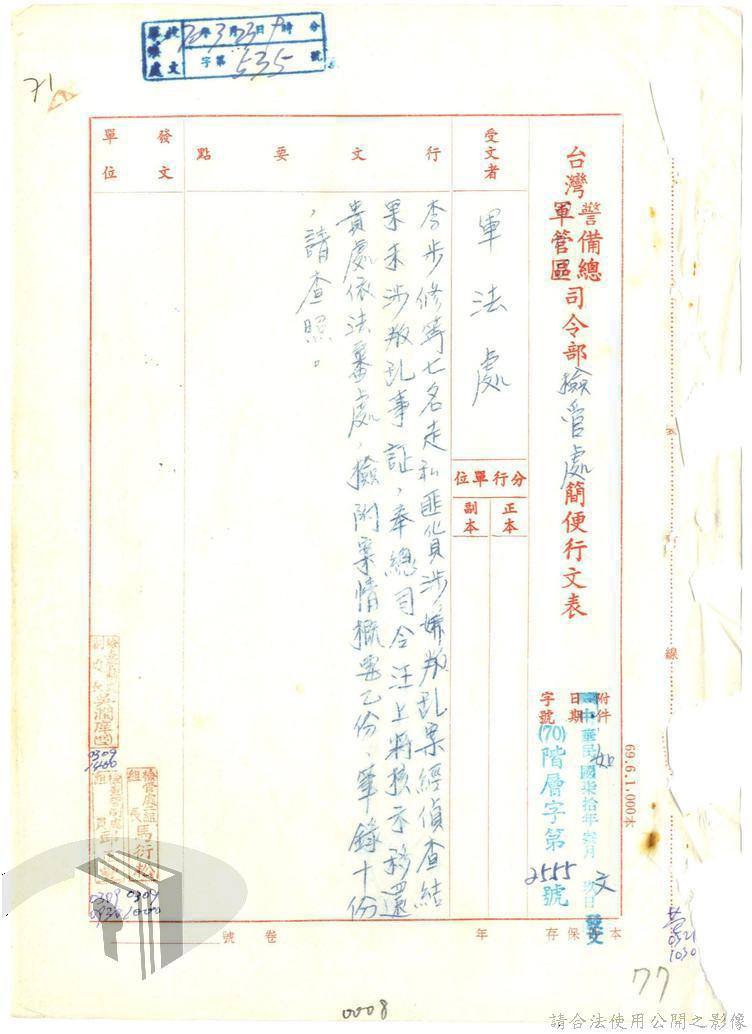 收文
軍法處
70年3月23日9時 分
字第535號
71
台灣警備總
軍管區
司令部檢管處簡便行文表
附件 如文
日期 中華民國柒拾年叁月 日發文
字號 (70)階層字第2555號
受文者
軍法處
分行單位
正本
副本
行文要點
李步修等七名走私匪貨涉嫌叛乱案經偵查結
果未涉叛乱事証,奉總司令汪上將核示移還
貴處依法審處,檢附案情概要乙份、筆錄十份
,請查照。
發文
單位
0309
1400
檢管處一組
組長 馬衍松
0309
1000
0309
0930
69.6.1,000本
線
0321
1030
本保存 年 卷 號
77
0008
請合法使用公開之影像